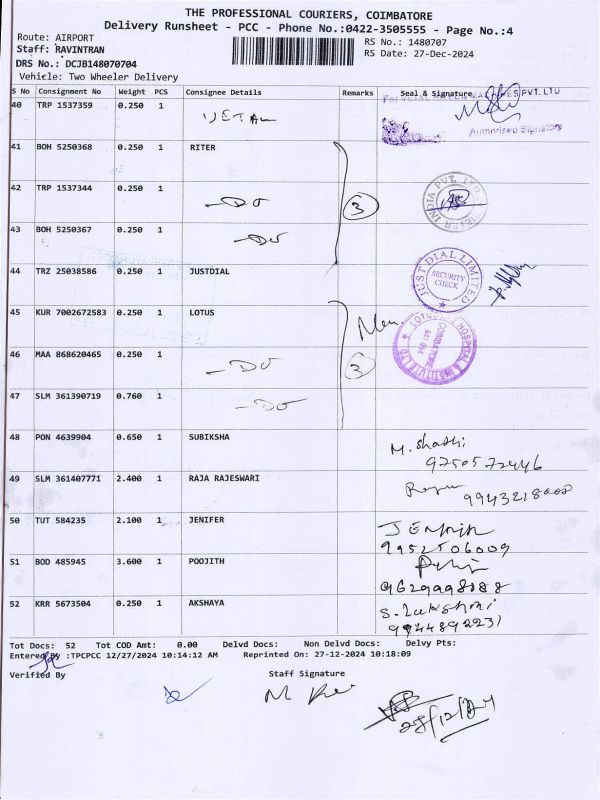 THE PROFESSIONAL COURIERS, COIMBATORE
Delivery Runsheet - PCC - Phone No.:0422-3505555 - Page No.:4
Route: AIRPORT
RS No.: 1480707
Staff: RAVINTRAN
RS Date: 27-Dec-2024
DRS No.: DCJB148070704
Vehicle: Two Wheeler Delivery
S No Consignment No Weight PCS Consignee Details Remarks Seal & Signature
40 TRP 1537359 0.250 1
PVT. LTD
Authorised Signatory
41 BOH 5250368 0.250 1 RITER
42 TRP 1537344 0.250 1 -Do 3
43 BOH 5250367 0.250 1 -Do
44 TRZ 25038586 0.250 1 JUSTDIAL
JUST DIAL LIMITED
SECURITY CHECK
45 KUR 7002672583 0.250 1 LOTUS
46 MAA 868620465 0.250 1 -Do 3
LOTUS HOSPITAL
COIMBATORE
47 SLM 361390719 0.760 1 -Do
48 PON 4639904 0.650 1 SUBIKSHA
M. Shathi
9750572446
49 SLM 361407771 2.400 1 RAJA RAJESWARI
9943218008
50 TUT 584235 2.100 1 JENIFER
9952506009
51 BOD 485945 3.600 1 POOJITH
9629998188
52 KRR 5673504 0.250 1 AKSHAYA
9944892231
Tot Docs: 52 Tot COD Amt: 0.00 Delvd Docs: Non Delvd Docs: Delvy Pts:
Entered By :TPCPCC 12/27/2024 10:14:12 AM Reprinted On: 27-12-2024 10:18:09
Verified By Staff Signature
28/12/24